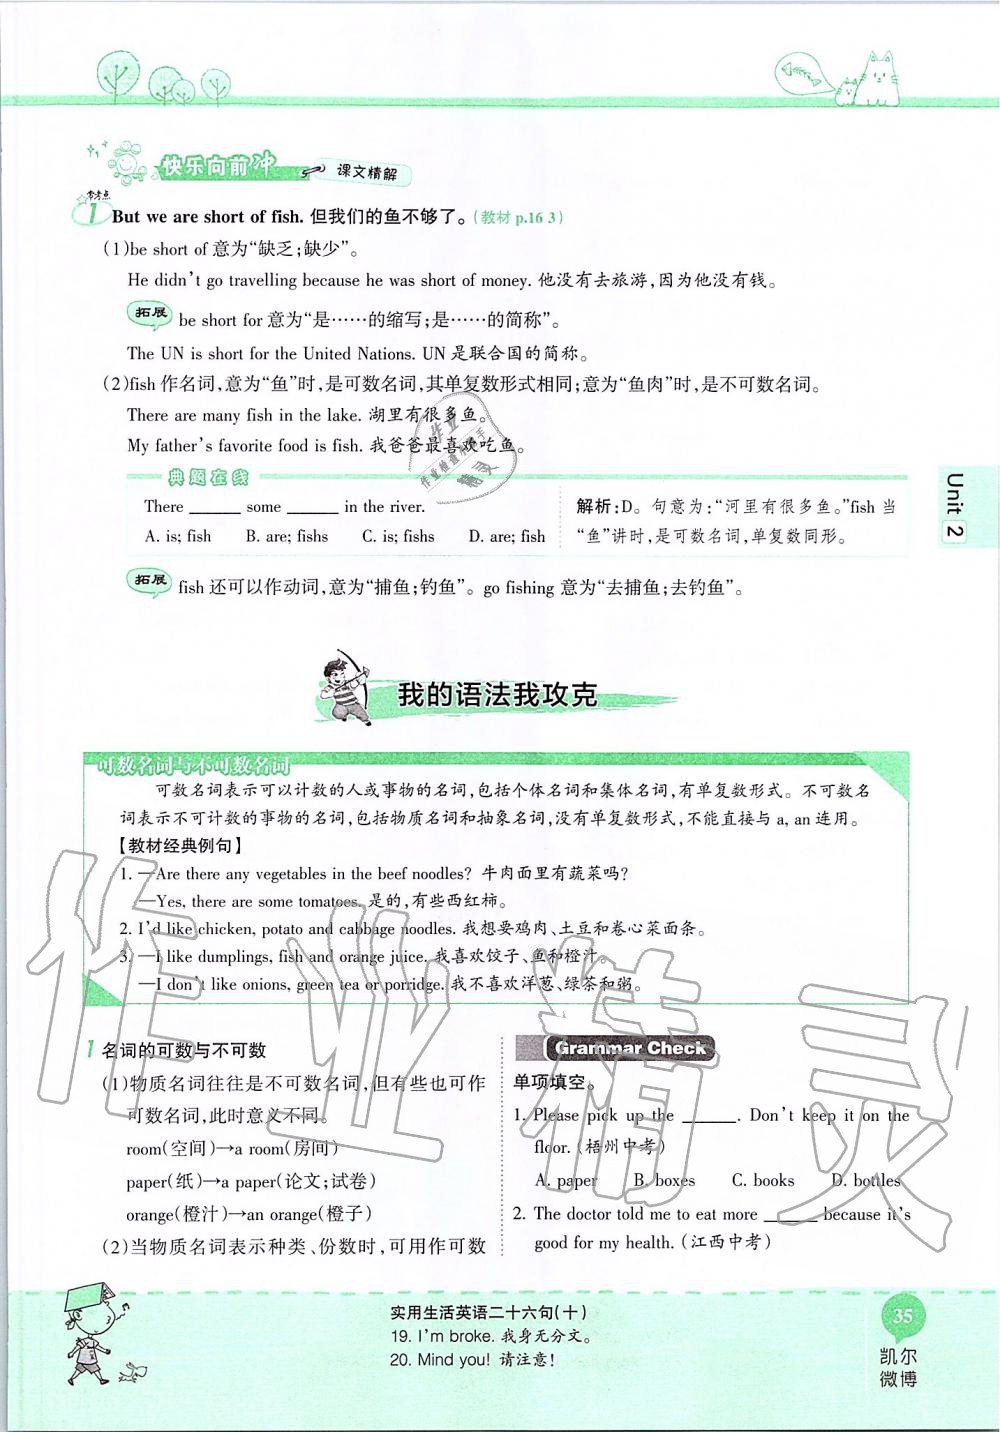 快乐向前冲 课文精解
常考点
1 But we are short of fish. 但我们的鱼不够了。(教材 p.16 3)
(1)be short of 意为“缺乏;缺少”。
He didn't go travelling because he was short of money. 他没有去旅游,因为他没有钱。
拓展 be short for 意为“是……的缩写;是……的简称”。
The UN is short for the United Nations. UN 是联合国的简称。
(2)fish 作名词,意为“鱼”时,是可数名词,其单复数形式相同;意为“鱼肉”时,是不可数名词。
There are many fish in the lake. 湖里有很多鱼。
My father's favorite food is fish. 我爸爸最喜欢吃鱼。
典题在线
There ______ some ______ in the river.
A. is; fish B. are; fishs C. is; fishs D. are; fish
解析:D。句意为:“河里有很多鱼。”fish 当
“鱼”讲时,是可数名词,单复数同形。
拓展 fish 还可以作动词,意为“捕鱼;钓鱼”。go fishing 意为“去捕鱼;去钓鱼”。
Unit 2
我的语法我攻克
可数名词与不可数名词
可数名词表示可以计数的人或事物的名词,包括个体名词和集体名词,有单复数形式。不可数名
词表示不可计数的事物的名词,包括物质名词和抽象名词,没有单复数形式,不能直接与 a, an 连用。
【教材经典例句】
1. —Are there any vegetables in the beef noodles? 牛肉面里有蔬菜吗?
—Yes, there are some tomatoes. 是的,有些西红柿。
2. I'd like chicken, potato and cabbage noodles. 我想要鸡肉、土豆和卷心菜面条。
3. —I like dumplings, fish and orange juice. 我喜欢饺子、鱼和橙汁。
—I don't like onions, green tea or porridge. 我不喜欢洋葱、绿茶和粥。
1 名词的可数与不可数
(1)物质名词往往是不可数名词,但有些也可作
可数名词,此时意义不同。
room(空间)→a room(房间)
paper(纸)→a paper(论文;试卷)
orange(橙汁)→an orange(橙子)
(2)当物质名词表示种类、份数时,可用作可数
Grammar Check
单项填空。
1. Please pick up the ______. Don't keep it on the
floor. (梧州中考)
A. paper B. boxes C. books D. bottles
2. The doctor told me to eat more ______ because it's
good for my health. (江西中考)
实用生活英语二十六句(十)
19. I'm broke. 我身无分文。
20. Mind you! 请注意!
35
凯尔
微博
作业精灵